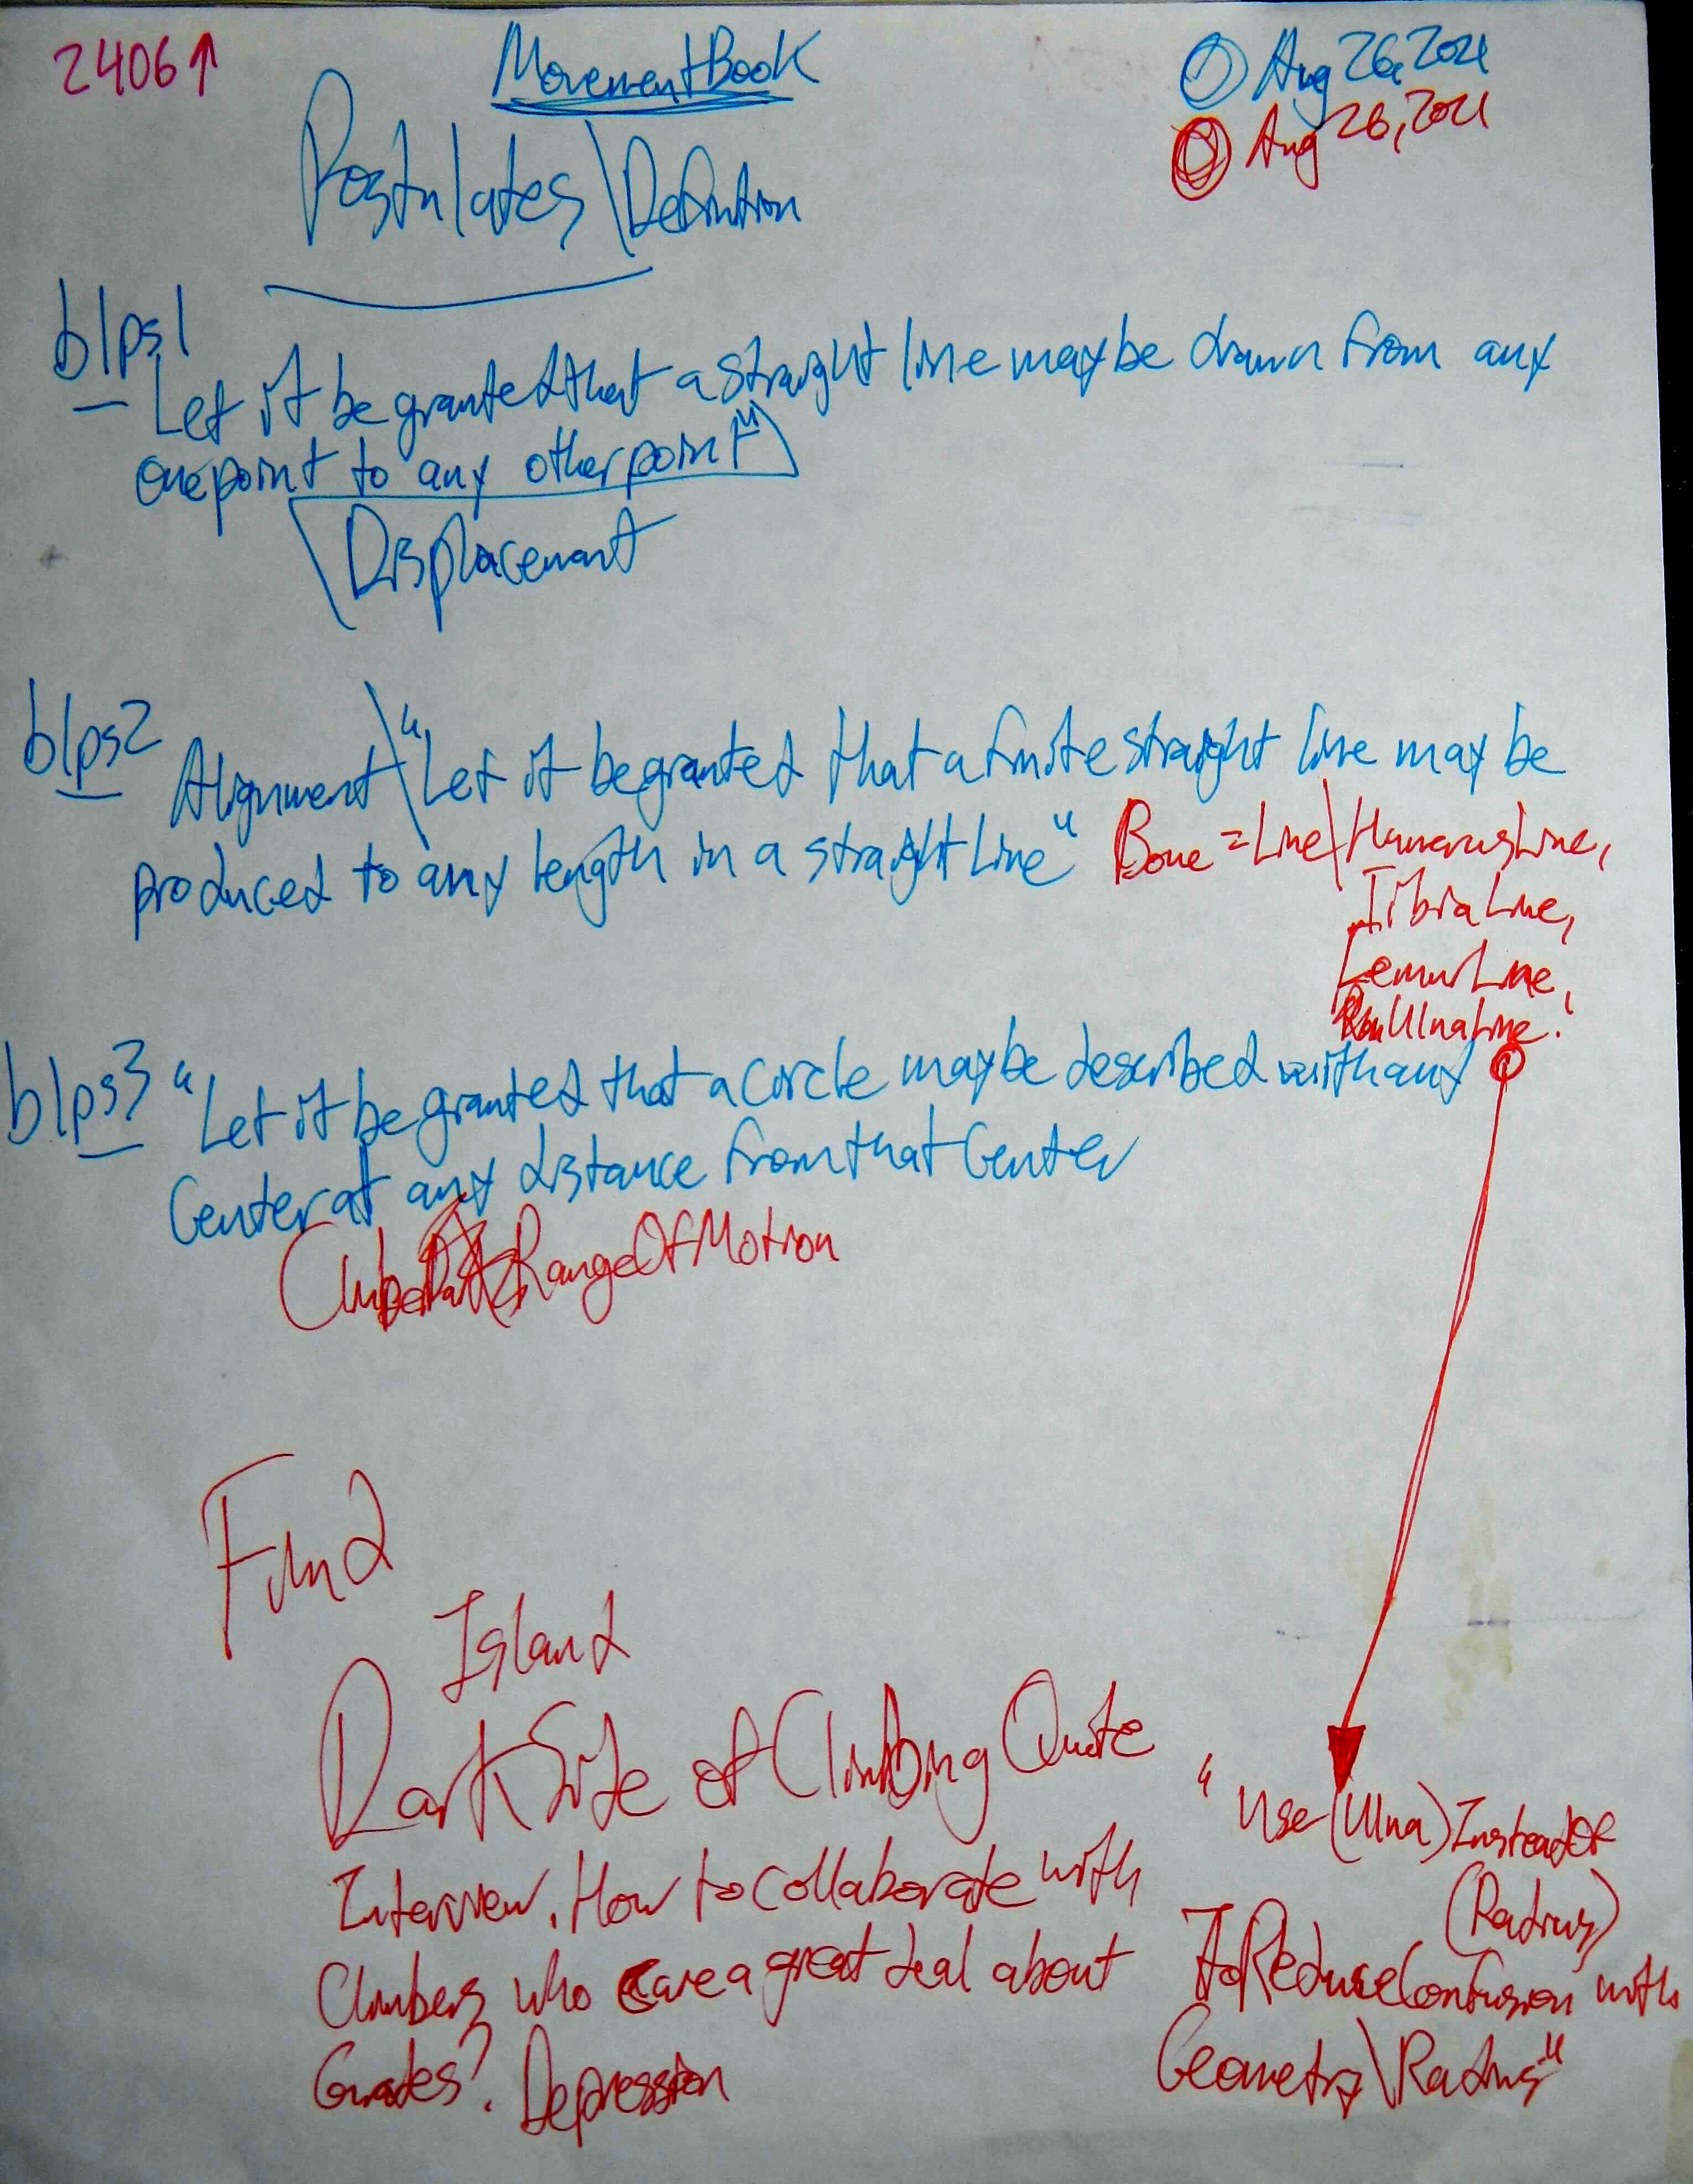 2406↑
MovementBook
① Aug 26, 2021
② Aug 26, 2021
Postulates\Definition
b1ps1
Let it be granted that a straight line may be drawn from any
one point to any other point"
\Displacement
b1ps2
Alignment\"Let it be granted that a finite straight line may be
produced to any length in a straight Line"
Bone=Line\HumerusLine,
TibiaLine,
FemurLine,
UlnaLine.
b1ps3 "Let it be granted that a Circle may be described with any
Center at any distance from that Center
RangeOfMotion
Find
Island
Dark Side of Climbing Quote
Interview. How to collaborate with
Climbers who Care a great deal about
Grades? Depression
"Use (Ulna) InsteadOf
(Radius)
ToReduceConfusion with
Geometry\Radius"